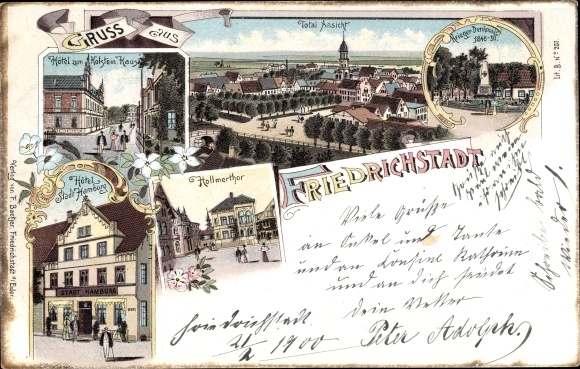 GRUSS aus
Total Ansicht
Krieger Denkmal
1848-51.
Lit. B. No 207.
Hôtel am Holstein. Haus
Hôtel
Stadt Hamburg
STADT HAMBURG
Hollmerthor
FRIEDRICHSTADT
Verlag von F. Daetjer, Friedrichstadt a/Eider.
Viele Grüße
an Onkel und Tante
und an Cousine Kathrine
und an dich sendet
dein Vetter
Peter Adolph.
Friedrichstadt
1900
Schreibe bald
wieder!